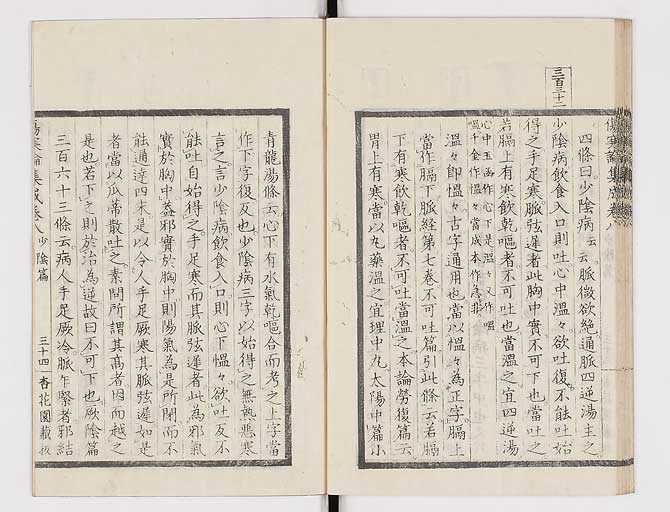 三百三十二
傷寒論集成卷八
四條曰少陰病云云脈微欲絶通脈四逆湯主之
少陰病飲食入口則吐心中温々欲吐復不能吐始
得之手足寒脈弦遲者此胸中實不可下也當吐之
若膈上有寒飲乾嘔者不可吐也當温之宜四逆湯
心中玉函作心下是温々又作嗢
嗢千金作愠々當成本作急非
温々即愠々古字通用也當以愠々為正字膈上
當作膈下脈經第七卷不可吐篇引此條云若膈
下有寒飲乾嘔者不可吐當温之本論勞復篇云
胃上有寒當以丸藥温之宜理中丸太陽中篇小
青龍湯條云心下有水氣乾嘔合而考之上字當
作下字復反也少陰病三字以始得之無熱惡寒
言之言少陰病飲食入口則心下愠々欲吐反不
能吐自始得之手足寒而其脈弦遲者此為邪氣
實於胸中蓋邪實於胸中則陽氣為是所閉而不
能通達四末是以令人手足厥寒其脈弦遲如是
者當以瓜蒂散吐之素問所謂其高者因而越之
是也若下之則於治為逆故曰不可下也厥陰篇
三百六十三條云病人手足厥冷脈乍緊者邪結
傷寒論集成卷八 少陰篇 三十四 杏花園藏板